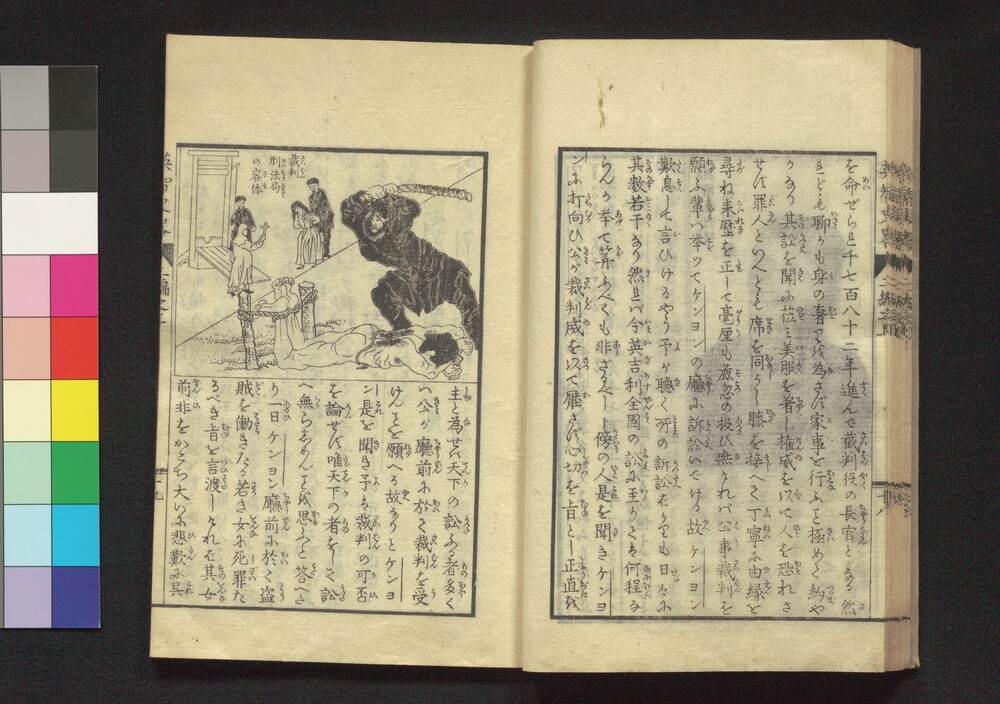 を命ぜられ千七百八十二年進んで裁判役の長官となる然
れども聊かも身の奢りを為さず家事を行ふこと極めて約や
かなり其訟を聞に莅み美服を着し権威を以て人を恐れさ
せず罪人といへども席を同うし膝を接へて丁寧に由縁を
尋ね来歴を正して毫厘も麁忽の扱ひ無ければ公事裁判を
願ふ輩は挙ッてケンヨンの廳に訴訟いでける故ケンヨン
歎息して言ひけるやう予が聴く所の訴訟だりとも日々に
其数若干あり然れば今英吉利全國の訟に至りては何程な
らんか挙て算ふべくも非ざるべし傍の人是を聞きケンヨ
ンに打向ひ公が裁判威を以て壓さず心切を旨とし正直を
裁判
刑法局
の容体
主と為せば天下の訟ふる者多く
は公が廳前に於て裁判を受
けんことを願へる故なりとケンヨ
ン是を聞き予は裁判の可否
を論ぜず唯天下の者をして訟
へ無らしめんことを思ふと答へけ
り一日ケンヨン廳前に於て盗
賊を働きたる若き女に死罪た
るべき旨を言渡しければ其女
前非をかこち大いに悲歎に呉